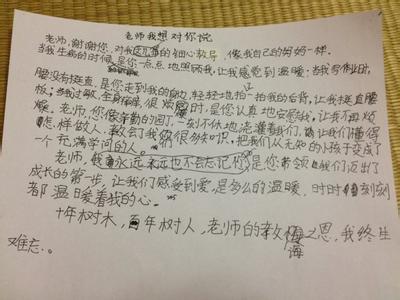 老师我想对你说
老师,谢谢您,对我的细心教导,像我自己的妈妈一样。
当我生病的时候,是你一点点地照顾我,让我感觉到温暖;当我写作业时,
腰没有挺直,是您走到我的身边,轻轻地拍一拍我的后背,让我挺直腰
板;当我过敏,全身很烦时,是您认真地安慰我,让我不再烦
燥。老师,您像辛勤的园丁,一刻不休地浇灌着我们,让我们懂得
怎样做人,教会我们很多知识,把我们从无知的小孩子变成了
一个充满学问的人。
老师,永远永远也不会忘记你,是您带领我们迈出了
成长的第一步,让我们感受到爱,是多么的温暖,时时刻刻
都温暖着我的心。
十年树木,百年树人,老师的教诲之恩,我终生
难忘。